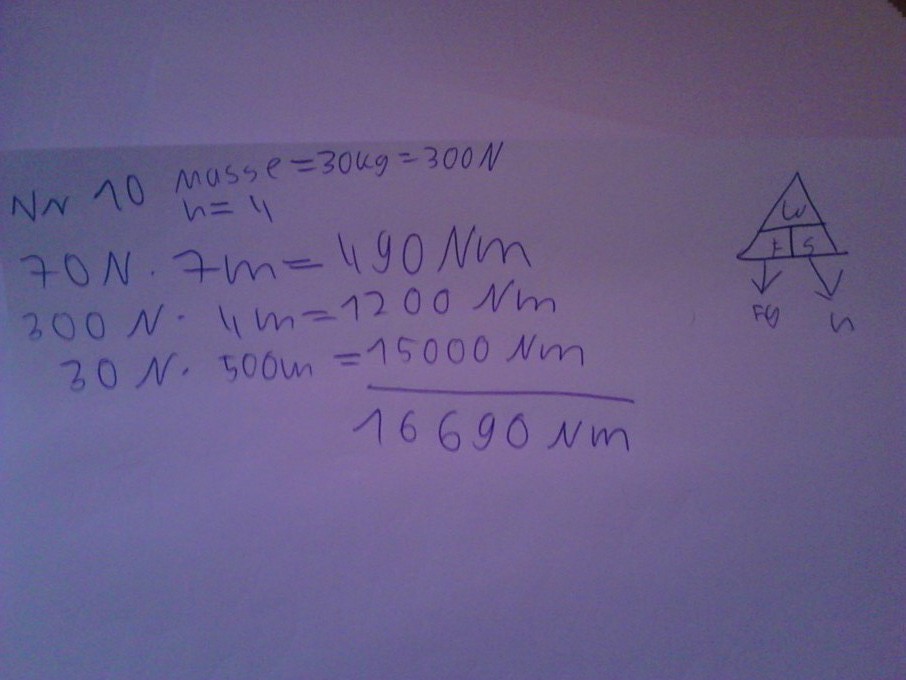 Nr 10 Masse = 30kg = 300N
h = 4
70N · 7m = 490 Nm
300 N · 4m = 1200 Nm
30 N · 500m = 15000 Nm
16690 Nm
W
F S
FG h